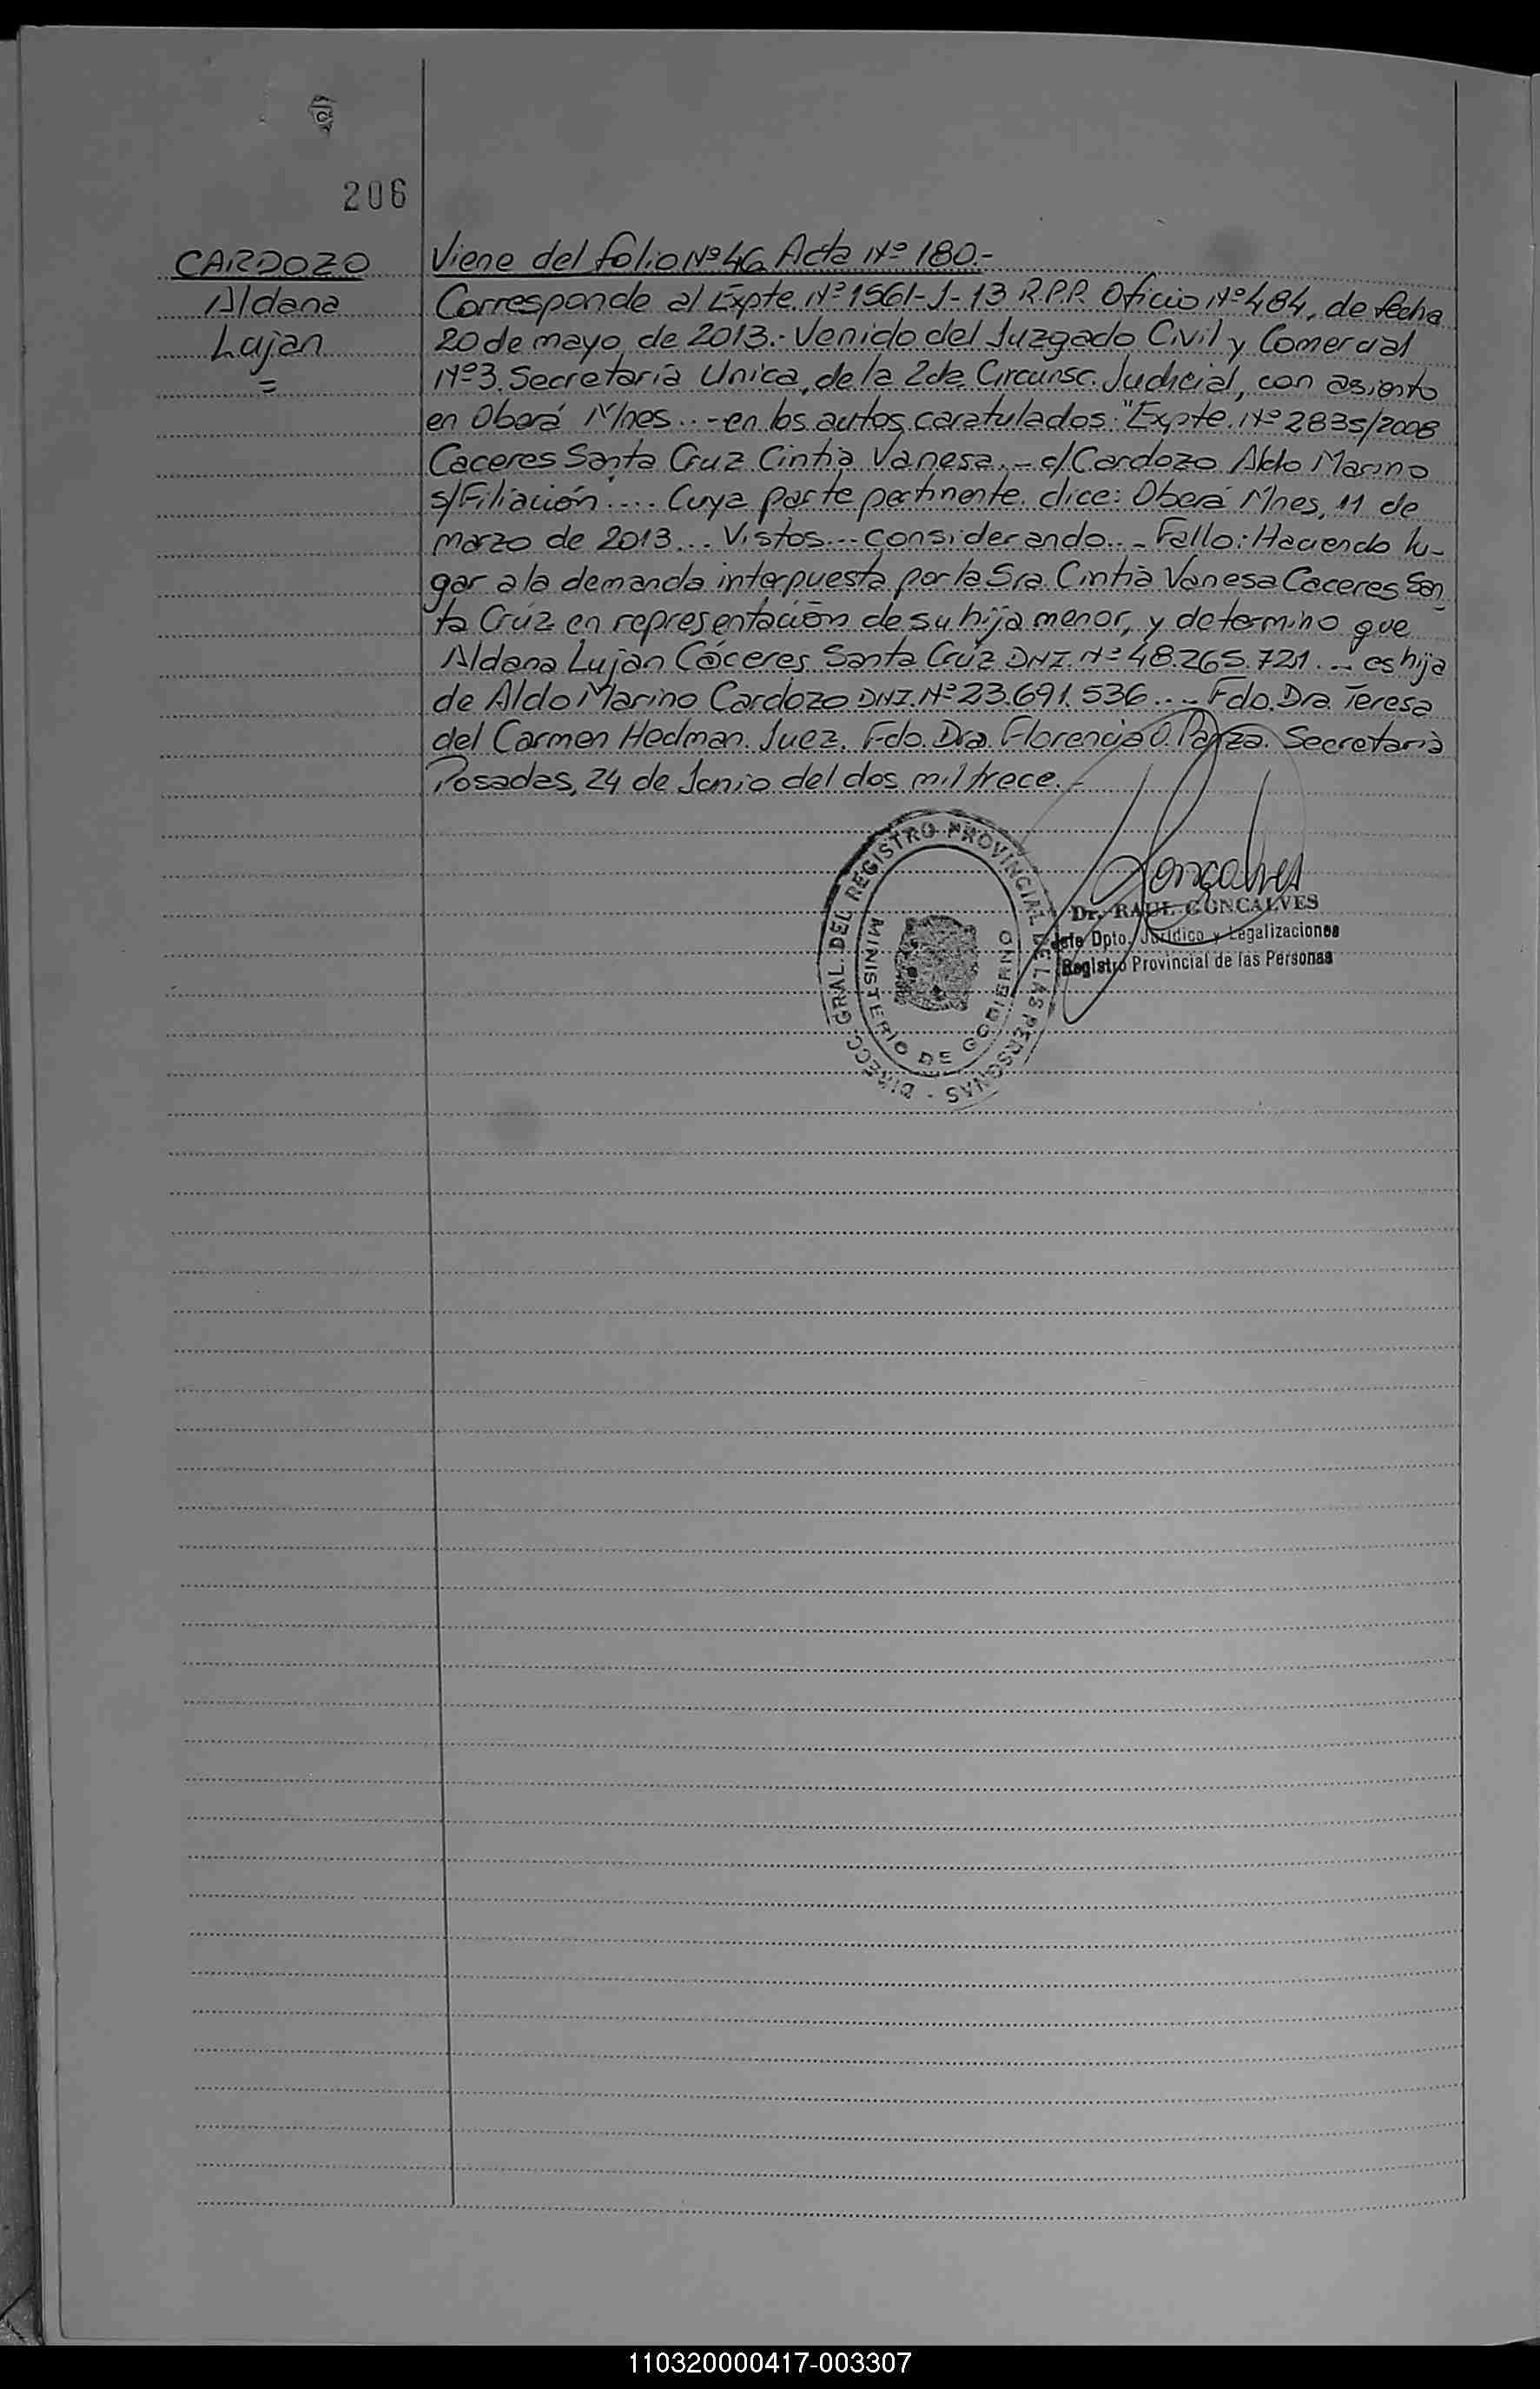 206
CARDOZO
Aldana
Lujan
=
Viene del folio Nº 46 Acta Nº 180.-
Corresponde al Expte. Nº 1561-J-13 R.P.P. Oficio Nº 484, de fecha
20 de mayo de 2013.- Venido del Juzgado Civil y Comercial
Nº 3. Secretaría Unica, de la 2da Circunsc. Judicial, con asiento
en Oberá Mnes...- en los autos caratulados: "Expte. Nº 2835/2008
Caceres Santa Cruz Cintia Vanesa.- c/ Cardozo Aldo Marino
s/ Filiación.... Cuya parte pertinente. dice: Oberá Mnes, 11 de
marzo de 2013... Vistos... considerando..- Fallo: Haciendo lu-
gar a la demanda interpuesta por la Sra. Cintia Vanesa Caceres San
ta Cruz en representación de su hija menor, y determino que
Aldana Lujan Cáceres Santa Cruz DNI. Nº 48.265.721.- es hija
de Aldo Marino Cardozo DNI. Nº 23.691.536...- Fdo. Dra. Teresa
del Carmen Hedman. Juez. Fdo. Dra. Florencia O. Secretaria
Posadas, 24 de Junio del dos mil trece.-
DIRECC. GRAL. DEL REGISTRO PROVINCIAL DE LAS PERSONAS -
MINISTERIO DE GOBIERNO
Gonçalves
Dr. RAUL GONCALVES
Jefe Dpto. Jurídico y Legalizaciones
Registro Provincial de las Personas
110320000417-003307